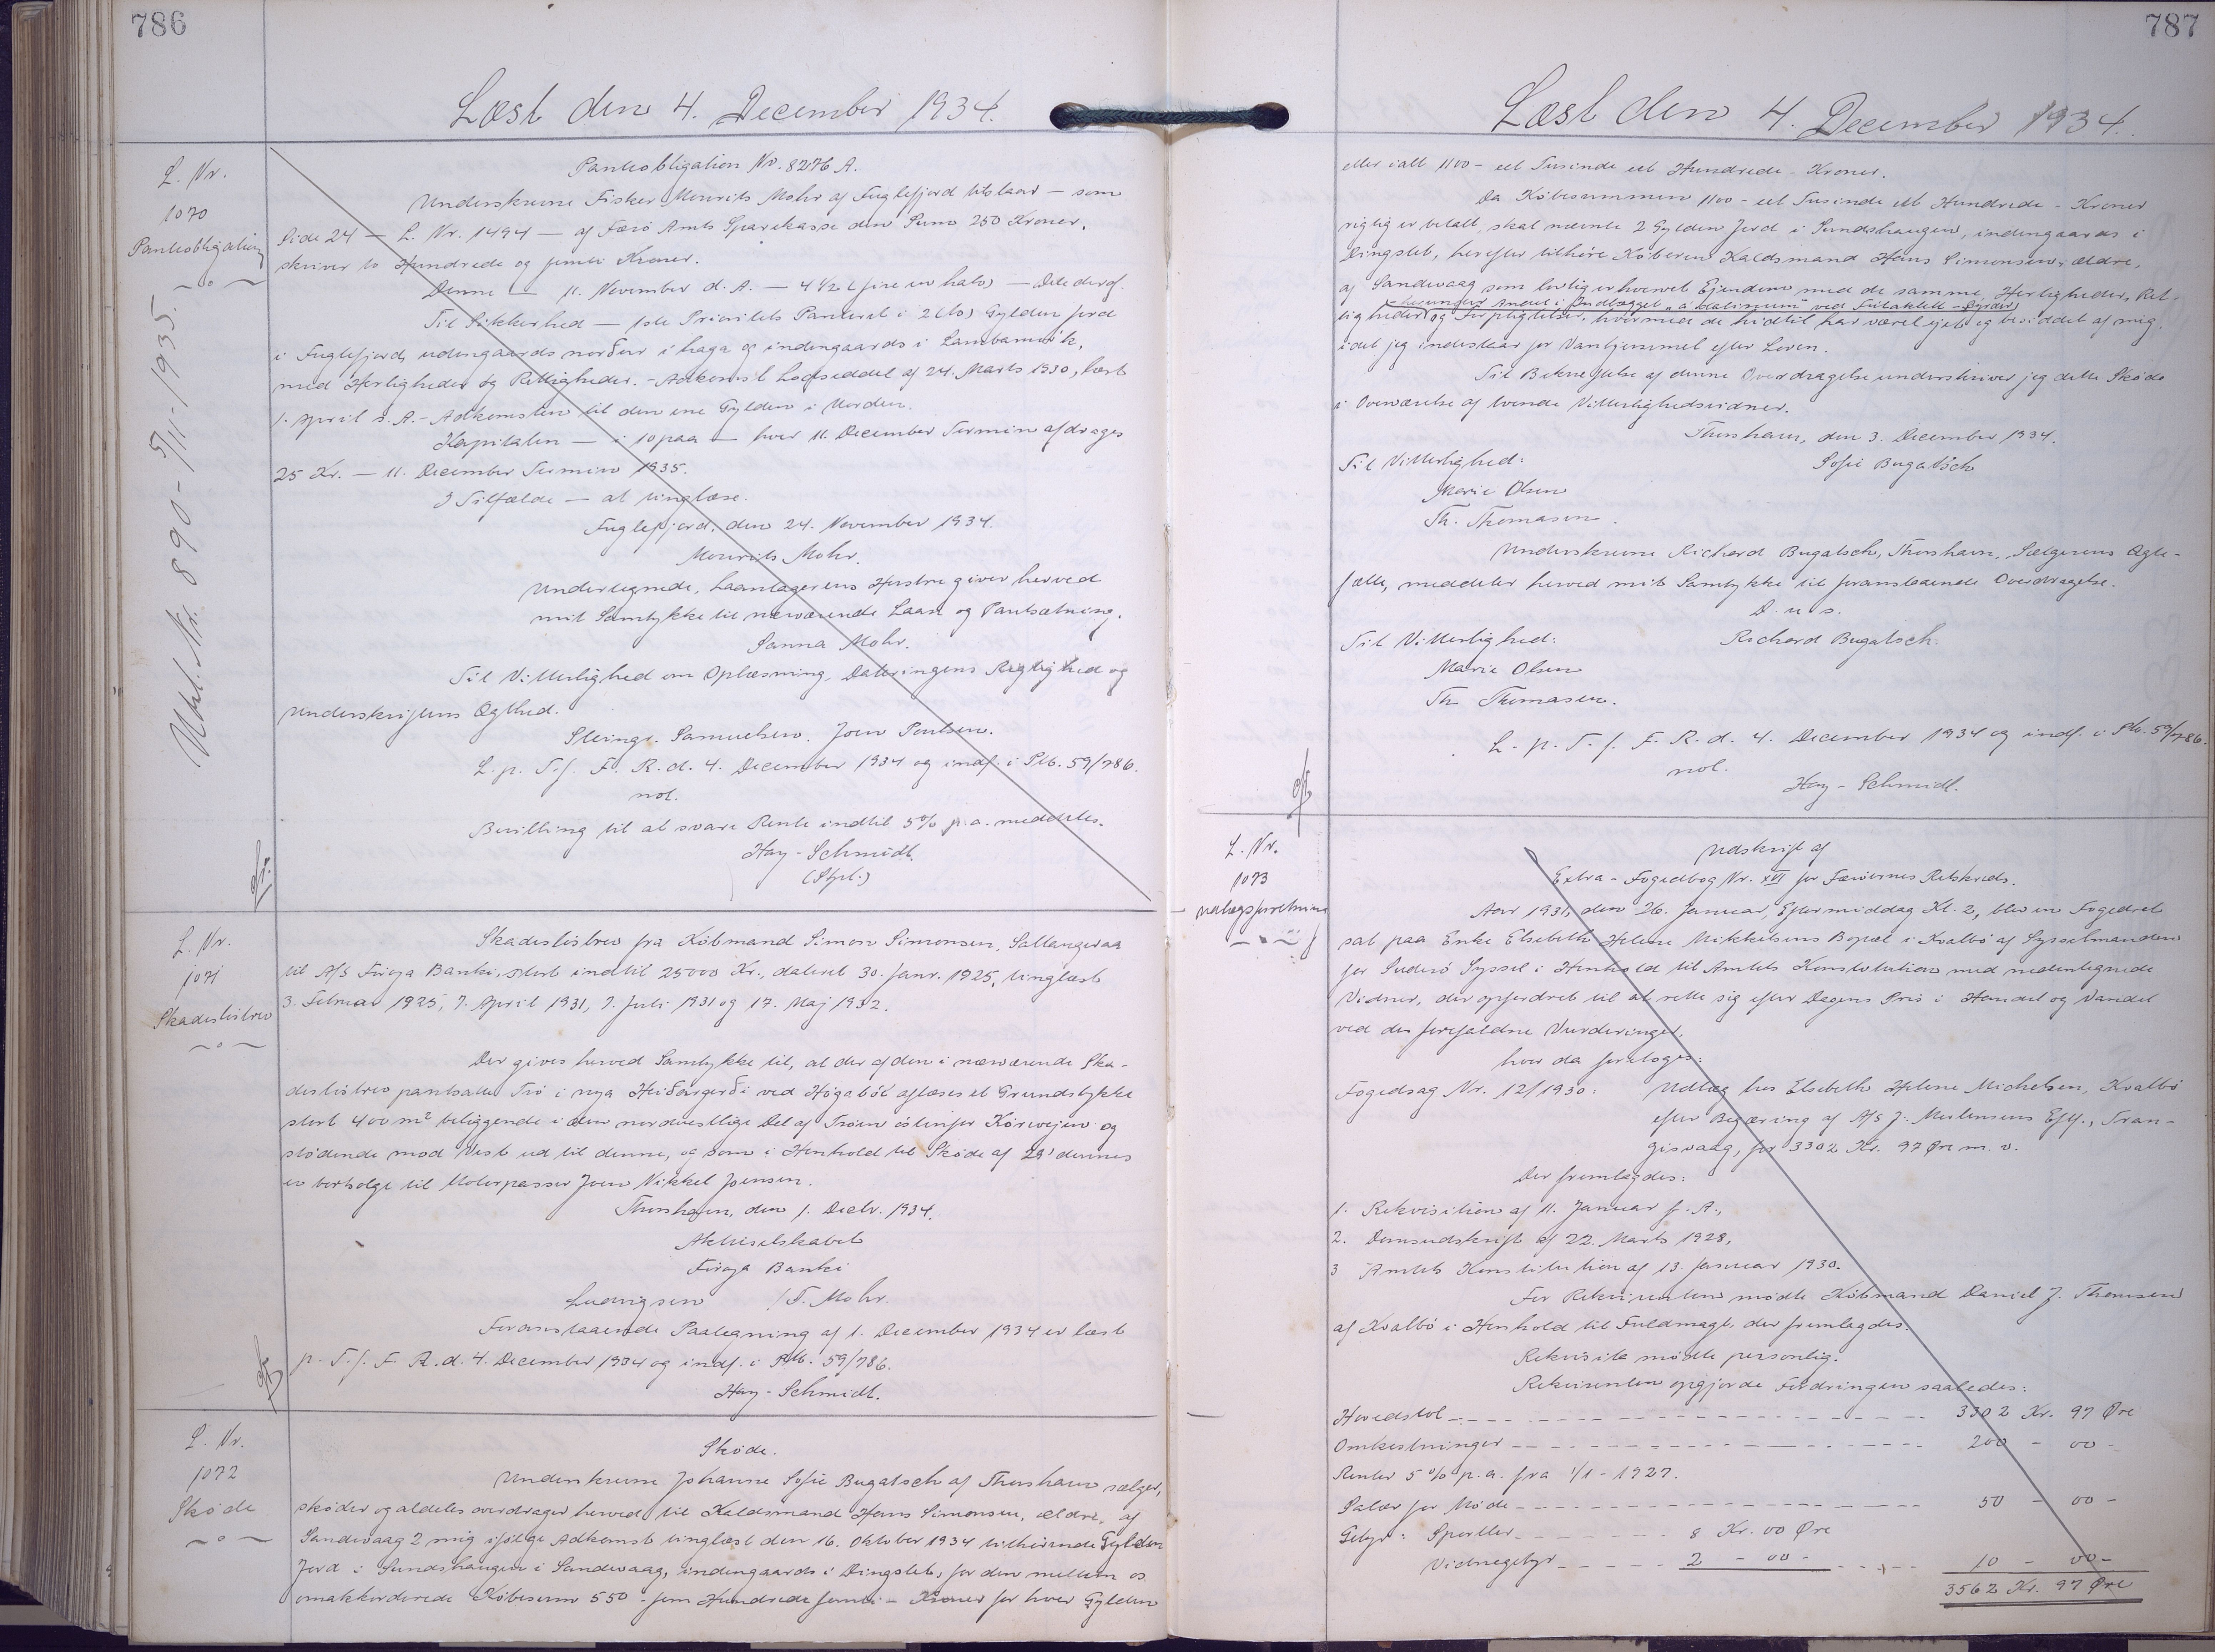 786
Læst den 4. December 1934.
L. Nr.
1070
Panteobligation
Udsl. Nr. 890 - 5/11-1935.
Panteobligation Nr. 8276 A.
Underskrevne Fisker Mourits Mohr af Fuglefjord tilstaar — som
Side 24 — L. Nr. 1494 — af Færø Amts Sparekasse den Sum 250 Kroner,
skriver to Hundrede og femti Kroner.
Denne — 11. November d. A. — 4 1/2 (fire en halv) — Dele deraf.
Til Sikkerhed — 1ste Prioritets Panteret i 2 (to) Gylden Jord
i Fuglefjord, udengaards norður i haga og indengaards i Lambamørk,
med Herligheder og Rettigheder. - Adkomst Lodseddel af 24. Marts 1930, læst
1. April s. A. - Adkomsten til den ene Gylden i Orden.
Kapitalen — i 10 paa — hver 11. December Termin afdrages
25 Kr. — 11. December Termin 1935.
I Tilfælde — at tinglæse.
Fuglefjord, den 24. November 1934.
Mourits Mohr.
Undertegnede, Laantagerens Hustru giver herved
mit Samtykke til nærværende Laan og Pantsætning.
Sanna Mohr.
Til Vitterlighed om Oplæsning, Dateringens Rigtighed og
Underskriftens Ægthed.
Steingr. Samuelsen. Joen Poulsen.
L. p. T. f. F. R. d. 4. December 1934 og indf. i Ptb. 59/786.
not.
Bevilling til at svare Rente indtil 5% p. a. meddeltes.
Hay-Schmidt.
(Stpl.)
L. Nr.
1071
Skadesløsbrev
Skadesløsbrev fra Købmand Simon Simonsen, Saltangeraa
til A/S Føroya Banki, stort indtil 25000 Kr., dateret 30. Janr. 1925, tinglæst
3. Februar 1925, 7. April 1931, 7. Juli 1931 og 17. Maj 1932.
Der gives herved Samtykke til, at der af den i nærværende Ska-
desløsbrev pantsatte Trø i nya Heiðargerði ved Høgabøl afløses et Grundstykke
stort 400 m² beliggende i den nordvestlige Del af Trøen østenfor Kørevejen og
stødende mod Vest ud til denne, og som i Henhold til Skøde af 29' dennes
er bortsolgt til Motorpasser Joen Nikkel Joensen.
Thorshavn, den 1. Decbr. 1934.
Aktieselskabet
Føroya Banki
Ludvigsen / T. Mohr.
Foranstaaende Paategning af 1. December 1934 er læst
p. T. f. F. R. d. 4. December 1934 og indf. i Ptb. 59/786.
Hay-Schmidt.
L. Nr.
1072
Skøde
Skøde.
Underskrevne Johanne Sofie Bugatsch af Thorshavn sælger,
skøder og aldeles overdrager herved til Kaldsmand Hans Simonsen, ældre, af
Sandevaag 2 mig ifølge Adkomst tinglæst den 16. Oktober 1934 tilhørende Gylden
Jord i Sundshaugen i Sandevaag, indengaards i Dingslet, for den mellem os
omakkorderede Købesum 550 - fem Hundrede femti - Kroner for hver Gylden
787
Læst den 4. December 1934.
eller ialt 1100 - eet Tusinde eet Hundrede - Kroner.
Da Købesummen 1100 - eet Tusinde eet Hundrede - Kroner
rigtig er betalt, skal nævnte 2 Gylden Jord i Sundshaugen, indengaards i
Dingslet, herefter tilhøre Køberen Kaldsmand Hans Simonsen, ældre,
af Sandevaag som lovlig erhvervet Ejendom med de samme Herligheder, Ret-
herunder Andel i Indlægget "á dalinum" ved Fútaklett - Gyrdev)
tigheder og Forpligtelser, hvormed de hidtil har været ejet og besiddet af mig,
idet jeg indestaar for Vanhjemmel efter Loven.
Til Bekræftelse af denne Overdragelse underskriver jeg dette Skøde
i Overværelse af tvende Vitterlighedsvidner.
Thorshavn, den 3. December 1934.
Til Vitterlighed: Sofie Bugatsch
Marie Olsen
Th. Thomasen.
Underskrevne Richard Bugatsch, Thorshavn, Sælgerens Ægte-
fælle, meddeler herved mit Samtykke til foranstaaende Overdragelse.
D. u. s.
Til Vitterlighed: Richard Bugatsch.
Marie Olsen
Th Thomasen.
L. p. T. f. F. R. d. 4. December 1934 og indf. i Ptb. 59/786.
not.
Hay-Schmidt.
L. Nr.
1073
Udlægsforretning
Udskrift af
Extra-Fogedbog Nr. XVI for Færøernes Retskreds.
Aar 1931, den 26. Januar, Eftermiddag Kl. 2, blev en Fogedret
sat paa Enke Elsebeth Helene Mikkelsens Bopæl i Kvalbø af Sysselmanden
for Suderø Syssel i Henhold til Amtets Konstitution med nedentegnede
Vidner, der opfordret til at rette sig efter Dagens Pris i Handel og Vandel
ved de forefaldne Vurderinger.
hvor da foretoges:
Fogedsag Nr. 12/1930: Udlæg hos Elsebeth Helene Michelsen, Kvalbø
efter Begæring af A/S J. Mortensens Eftf., Tran-
gisvaag, for 3302 Kr. 97 Øre m. v.
Der fremlagdes:
1. Rekvisition af 11. Januar f. A.,
2. Domsudskrift af 22. Marts 1928,
3 Amtets Konstitution af 13. Januar 1930.
For Rekvirenten mødte Købmand Daniel J. Thomsen
af Kvalbø i Henhold til Fuldmagt, der fremlagdes.
Rekvisita mødte personlig.
Rekvirenten opgjorde Fordringen saaledes:
Hovedstol 3302 Kr. 97 Øre
Omkostninger 200 - 00 -
Renter 5% p. a. fra 1/1 - 1927.
Salær for Møde 50 - 00 -
Gebyr: Sportler 8 Kr. 00 Øre
Vidnegebyr 2 - 00 - 10 - 00 -
3562 Kr. 97 Øre